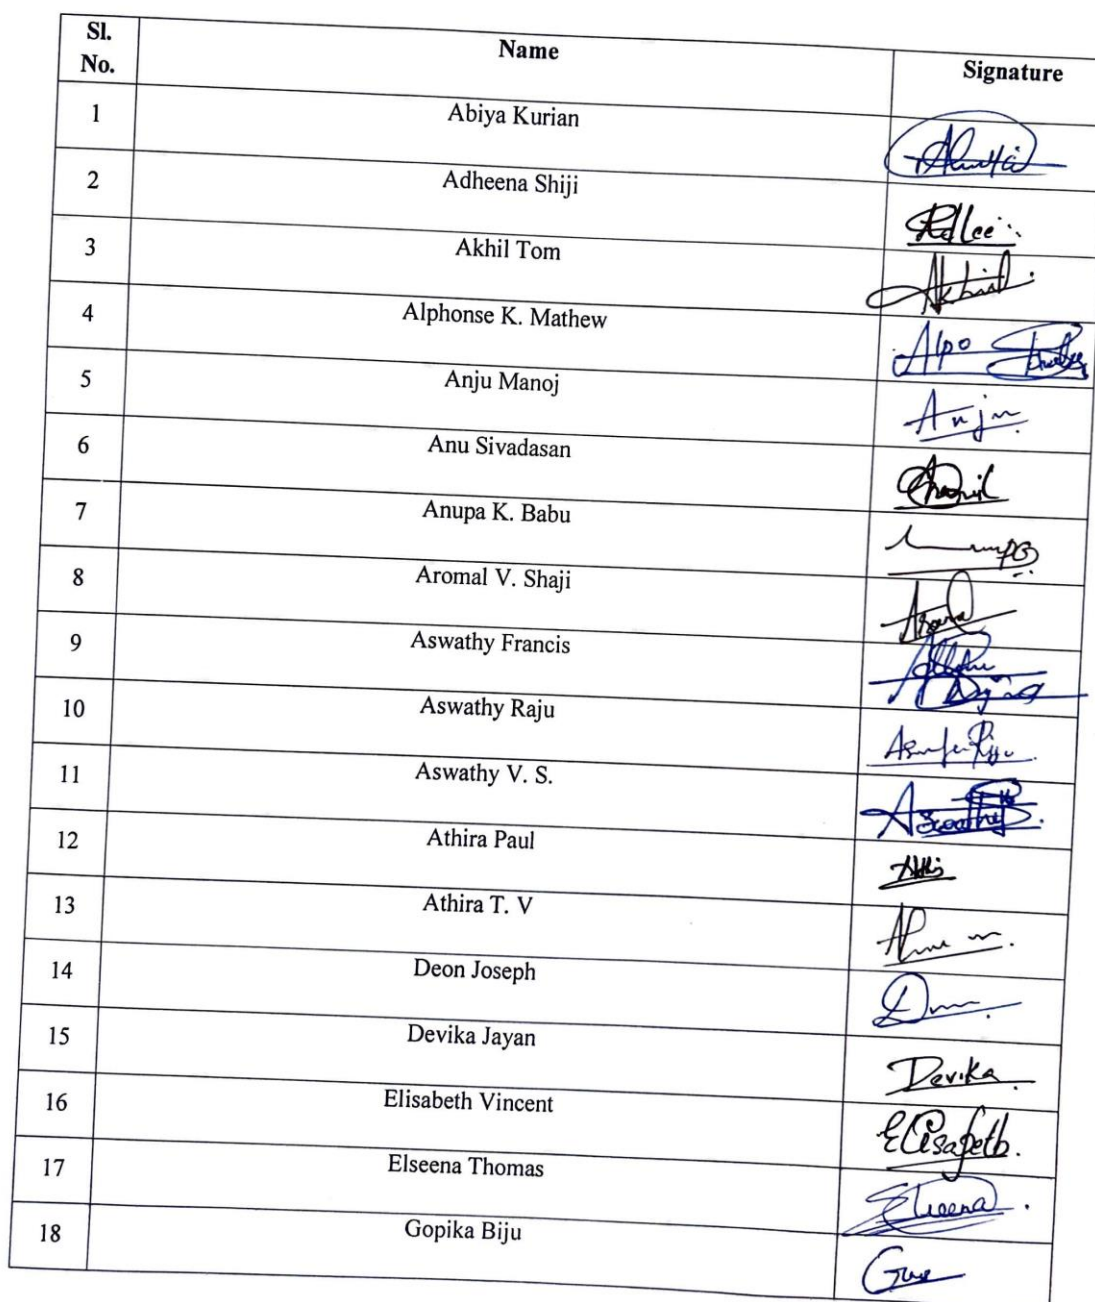 Sl. No. Name Signature
1 Abiya Kurian
2 Adheena Shiji
3 Akhil Tom Akhil
4 Alphonse K. Mathew Alpo
5 Anju Manoj Anju
6 Anu Sivadasan
7 Anupa K. Babu
8 Aromal V. Shaji
9 Aswathy Francis
10 Aswathy Raju
11 Aswathy V. S. Aswathy
12 Athira Paul
13 Athira T. V
14 Deon Joseph
15 Devika Jayan Devika
16 Elisabeth Vincent Elisabeth.
17 Elseena Thomas Elseena
18 Gopika Biju